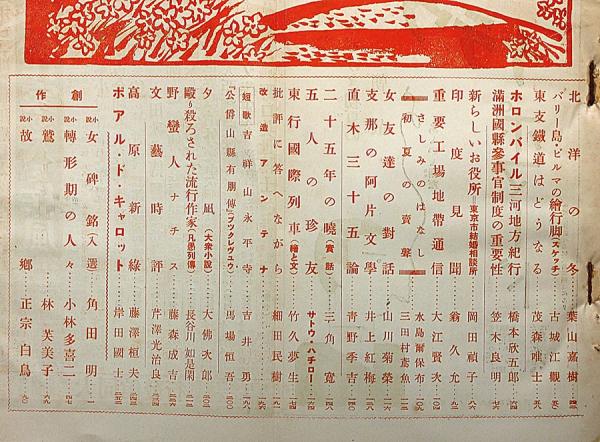 北洋の冬 葉山嘉樹
バリー島・ビルマの繪行脚(スケッチ) 古城江觀
東支鐵道はどうなる 茂森唯士
ホロンバイル三河地方紀行 橋本欣五郎
滿洲國縣參事官制度の重要性 笠木良明
新らしいお役所 東京市結婚相談所 岡田禎子
印度見聞 翁久允
重要工場地帶通信 大江賢次
さしみのはなし 水島爾保布
初夏の賣聲 三田村鳶魚
女友達の對話 山川菊榮
支那の阿片文學 井上紅梅
直木三十五論 青野季吉
二十五年の曉(實話) 三角寛
五人の珍友 サトウ・ハチロー
東行國際列車(繪と文) 竹久夢生
批評に答へながら 細田民樹
改造アンテナ
短歌 吉祥山永平寺 吉井勇
『公爵山縣有朋傳』(ブツクレヴユウ) 馬場恒吾
夕凪(大衆小說) 大佛次郎
毆り殺ろされた流行作家(凡愚列傳) 長谷川如是閑
野蠻人ナチス 藤森成吉
文藝時評 芹澤光治良
高原新綠 藤澤桓夫
ボアル・ド・キャロット 岸田國士
創作
小說 女碑銘(入選) 角田明
小說 轉形期の人々 小林多喜二
小說 鷲 林芙美子
小說 故鄕 正宗白鳥